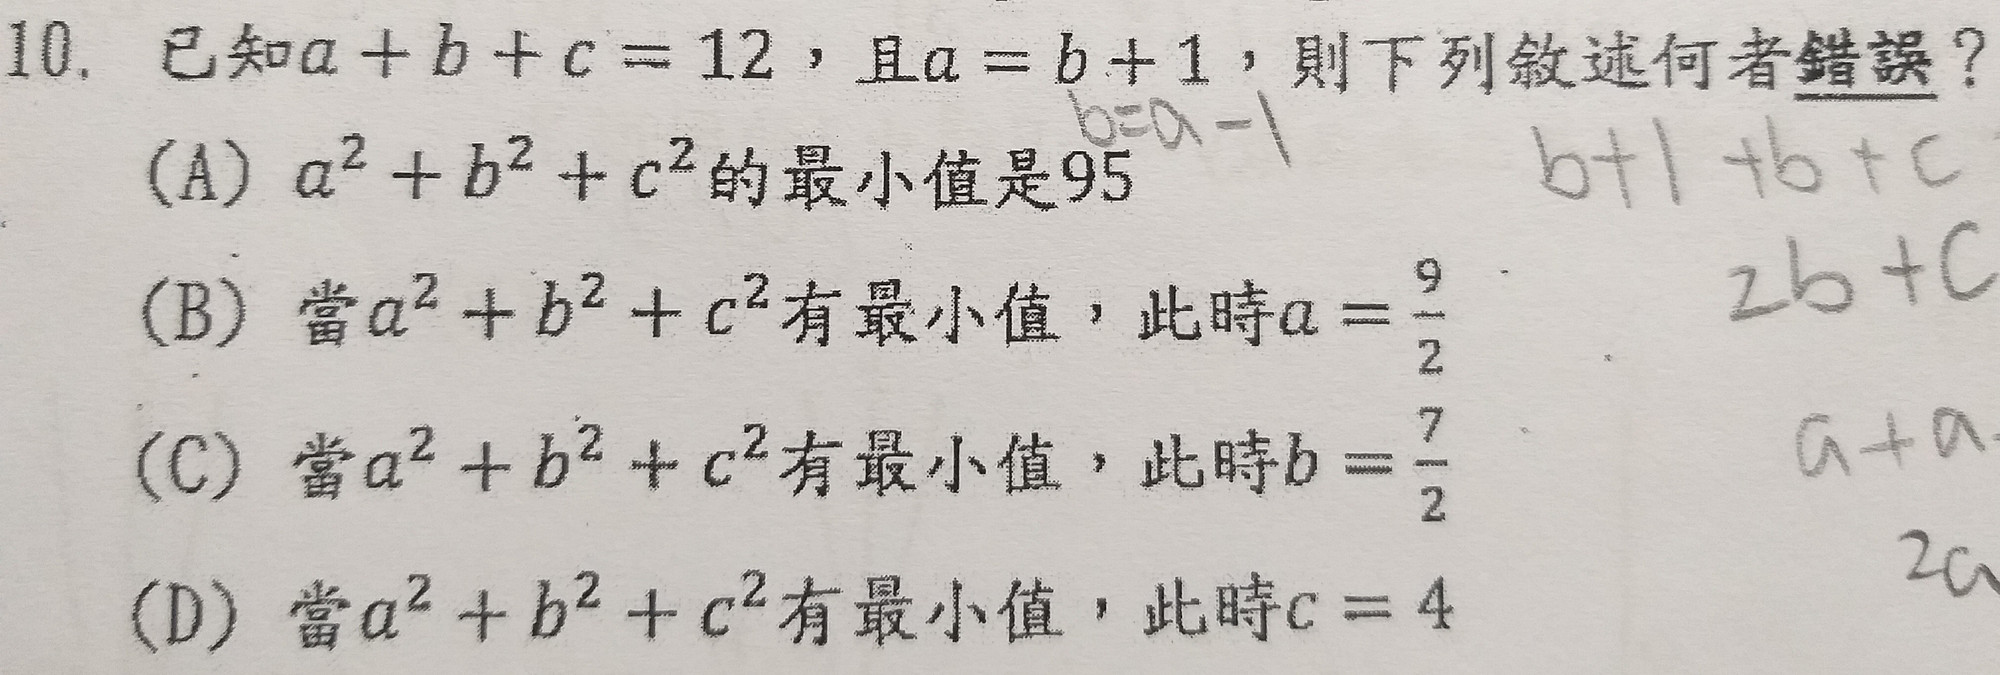 10. 已知a + b + c = 12，且a = b + 1，則下列敘述何者錯誤？
b=a-1
(A) a² + b² + c²的最小值是95
b+1+b+c
(B) 當a² + b² + c²有最小值，此時a = 9/2
2b+c
(C) 當a² + b² + c²有最小值，此時b = 7/2
a+a-
2a
(D) 當a² + b² + c²有最小值，此時c = 4